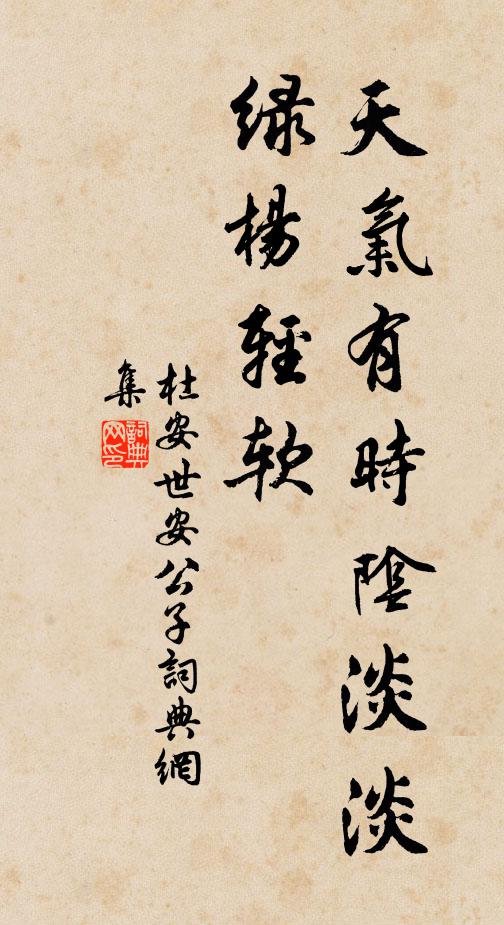 天氣有時陰淡淡
緑楊輕軟
杜安世安公子詞典網
集
詞典
网印